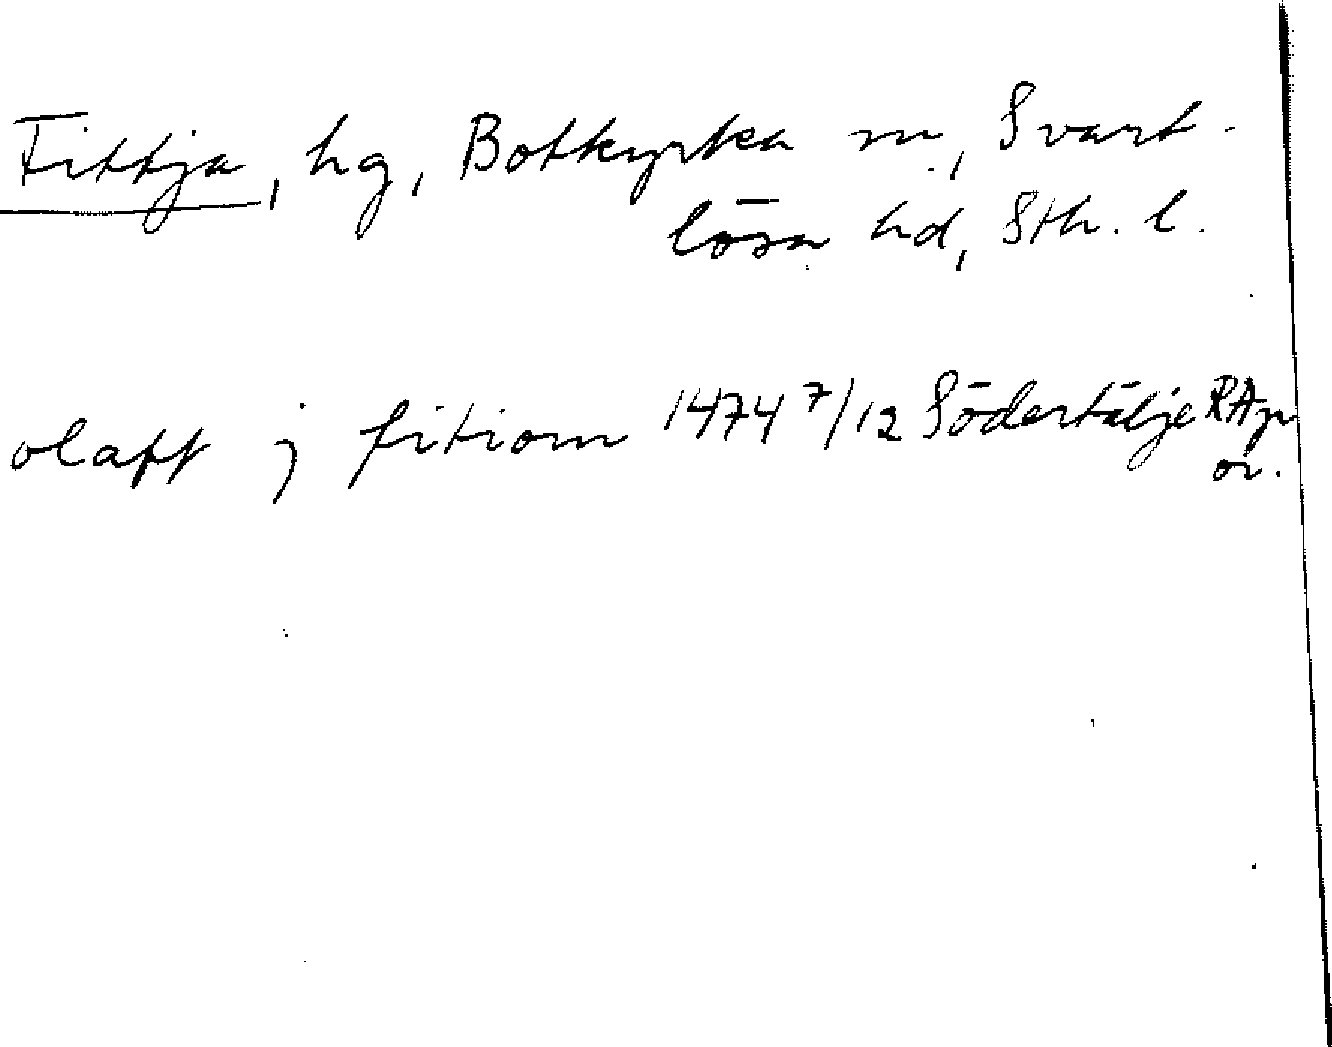 Fittja, hg, Botkyrka sn, Svart-
lösa hd, Sth. l.
olaff j fitiom 1474 7/12 Södertälje RAp
or.